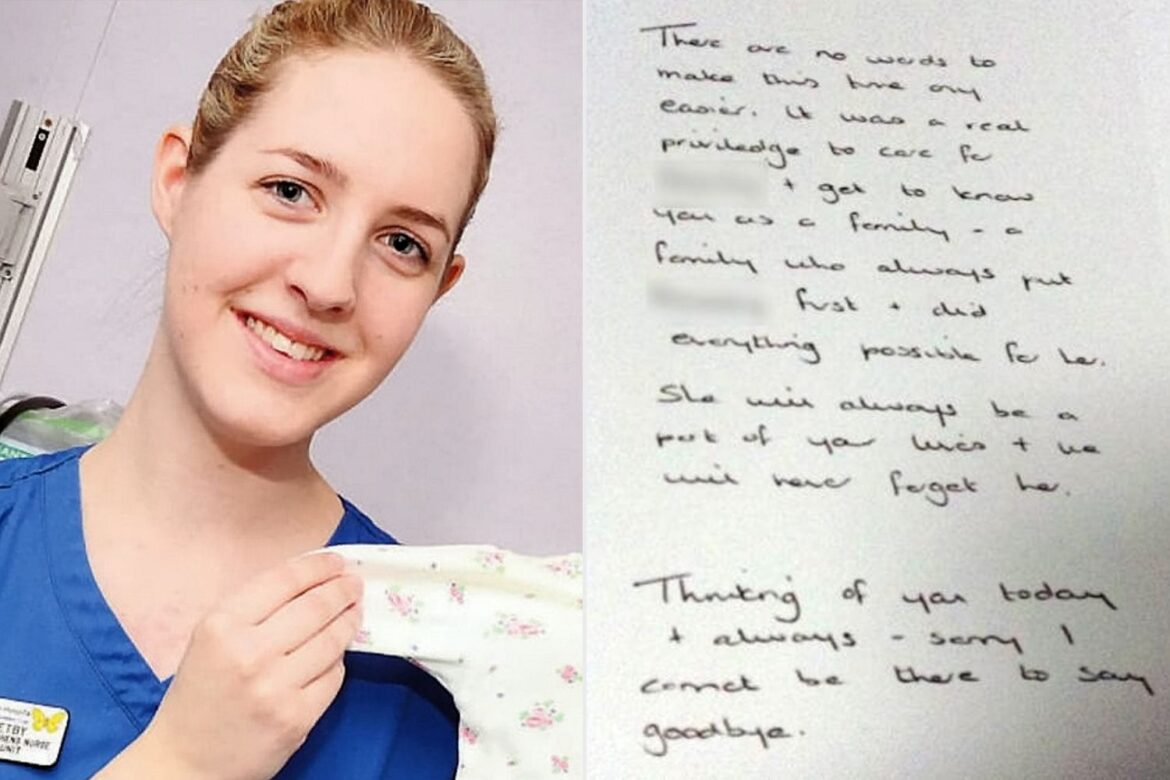 There are no words to
make this time any
easier. It was a real
priviledge to care for
+ get to know
you as a family - a
family who always put
first + did
everything possible for her.
She will always be a
part of your lives + we
will never forget her.
Thinking of you today
+ always - sorry I
cannot be there to say
goodbye.
ETBY
NURSE
UNIT